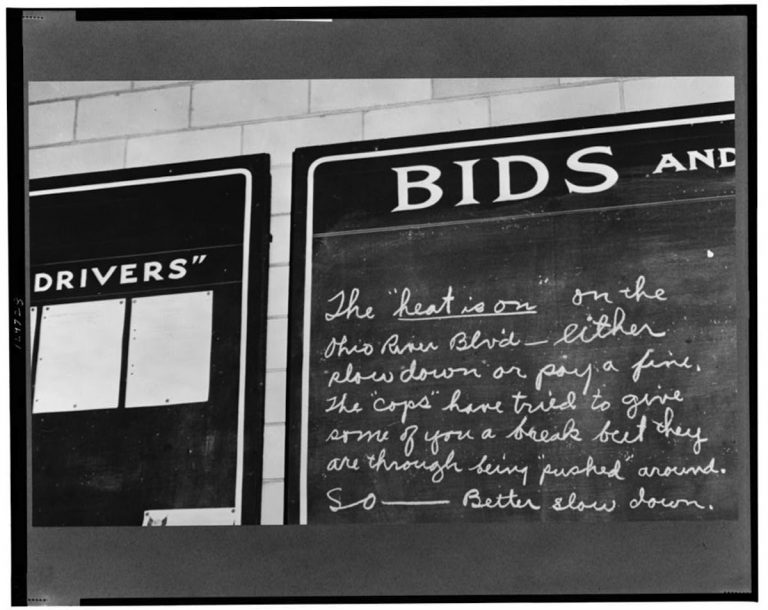 DRIVERS"
BIDS AND
The "heat is on" on the
Ohio River Blvd— either
slow down or pay a fine.
The "cops" have tried to give
some of you a break but they
are through being "pushed" around.
SO —— Better slow down.